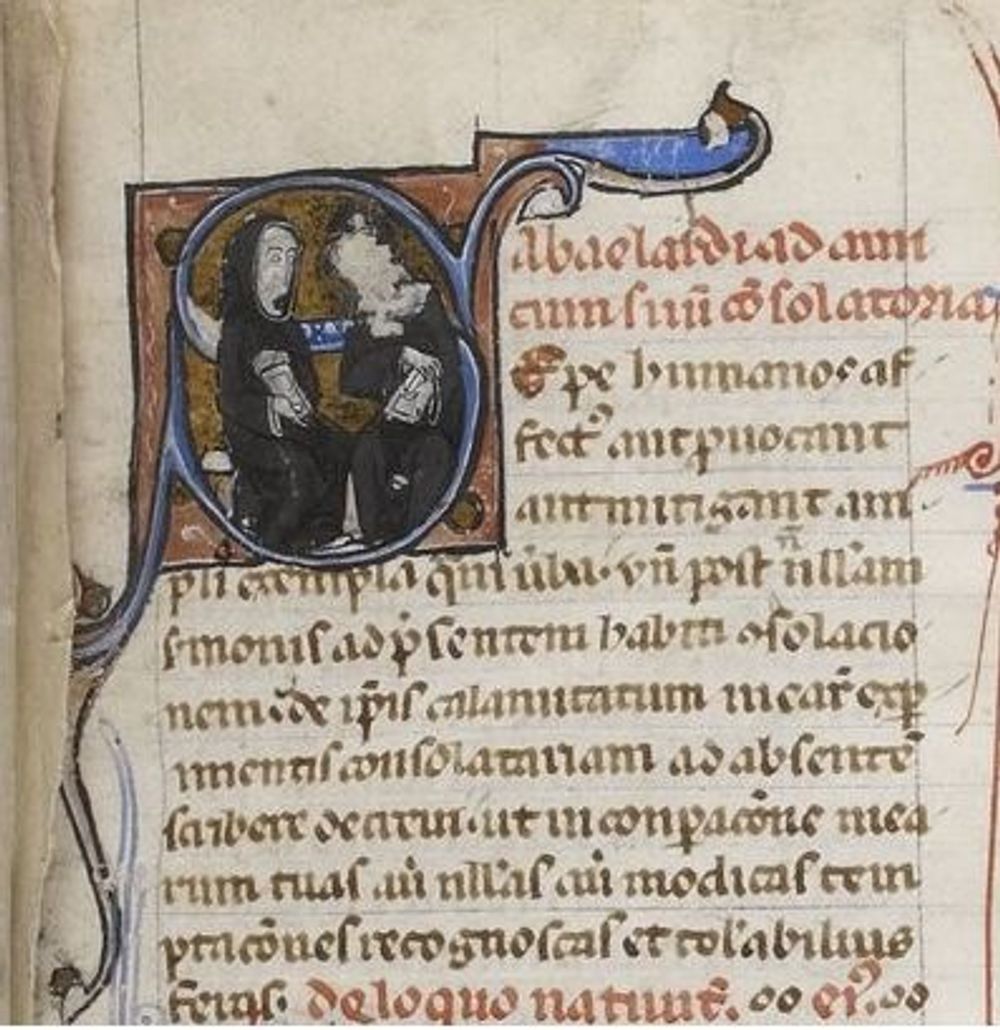 Abaelardi ad ami
cum suū cōsolatoria
Sepe humanos af
fectꝰ aut ꝓuocant
aut mitigant am
pli exempla q̄m ūba. vn̄ post n̄ll'am
smonis ad p̄sentem habiti ɔsolacio
nem de ip̄is calamitatum mearꝝ exꝑ
imentis consolatariam ad absentē
scribere decreui. ut in conꝑacōne mea
rum tuas au̇ nll'as au̇ modicas tem
ptacōnes recognoscas et tol'abilius
feras. de loquo natiuit̄. eiꝰ.